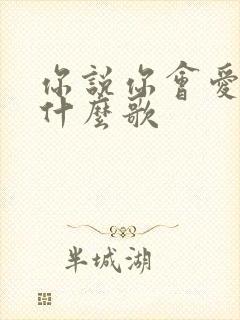 你說你會愛
什麼歌
半城湖